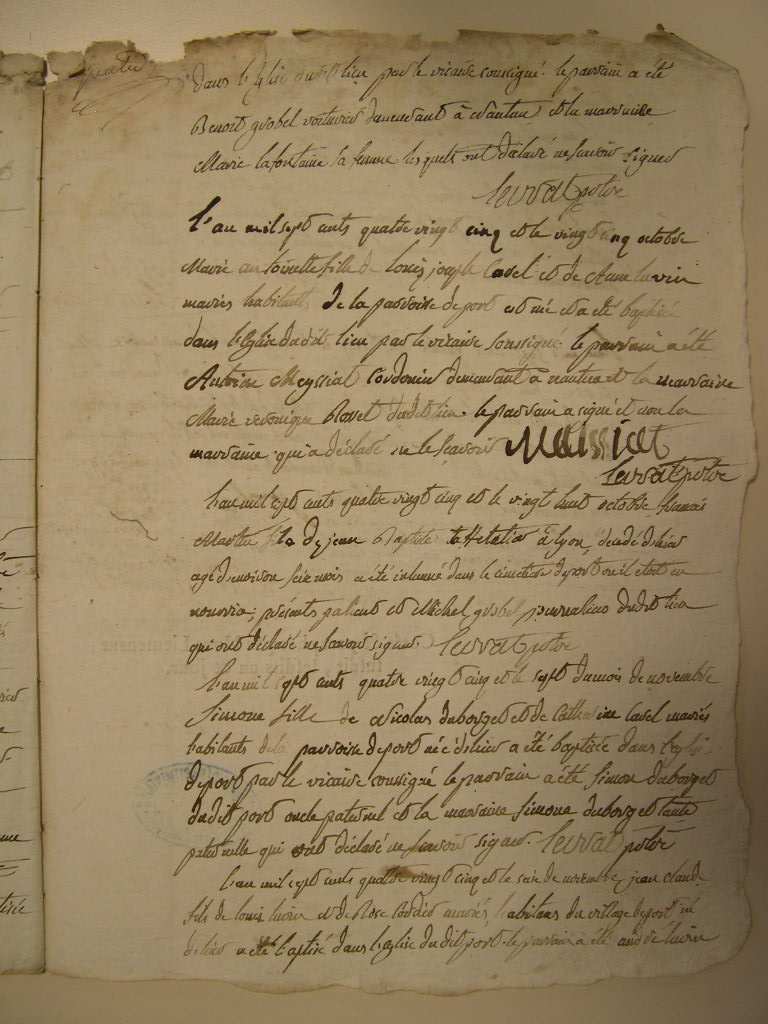 quatre
dans l'Eglise dudit lieu par le vicaire soussigné. le parrain a été
Benoit gobel voiturier demeurant à nantua et la marraine
Marie lafontaine sa femme lesquels ont déclaré ne scavoir signer
Levrat ptre
L'an mil sept cents quatre vingt cinq et le vingt cinq octobre
Marie antoinette fille de louis joseph Cavel et de Anne luvin
mariés habitants de la parroise de port est né et a été baptisée
dans l'Eglise dudit lieu par le vicaire soussigné. le parrain a été
Antoine Meyssiat Cordonier demeurant à nantua et la marraine
Marie veronique Ravet dudit lieu. le parrain a signé et non la
marraine qui a déclaré ne le scavoir Meissiat
Levrat ptre
L'an mil sept cents quatre vingt cinq et le vingt huit octobre
Marthe fils de jean Baptiste à Lyon, décédé d'hier
agé d'environ seize mois a été inhumé dans le cimetière de port ou il etoit en
nourrice; présents et Michel gobel journaliers dudit lieu
qui ont déclaré ne scavoir signer. Levrat ptre
L'an mil sept cents quatre vingt cinq et le sept du mois de novembre
Simone fille de Nicolas duborget et de Catherine Cavel mariés
habitants de la parroise de port né d'hier a été baptisée dans l'eglise
de port par le vicaire soussigné le parrain a été Simon duborget
dudit port oncle paternel et la marraine Simone duborget tante
paternelle qui ont déclaré ne scavoir signer. Levrat ptre
L'an mil sept cents quatre vingt cinq et le seize de novembre jean claude
fils de louis luvin et de Rose mariés, habitans du village de port né
d'hier a été baptisé dans l'eglise du dit port. le parrain a été andré luvin